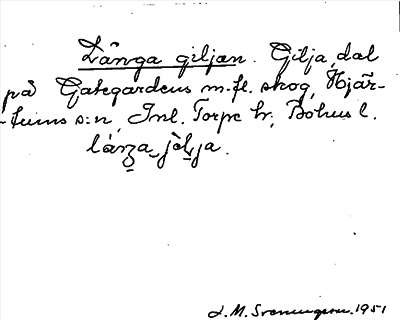 Långa giljan. Gilja, dal
på Gategardens m.fl. skog, Hjär-
-tums s:n, Inl. Torpe hr, Bohus l.
láŋa jèlja.
J. M. Svenungson. 1951